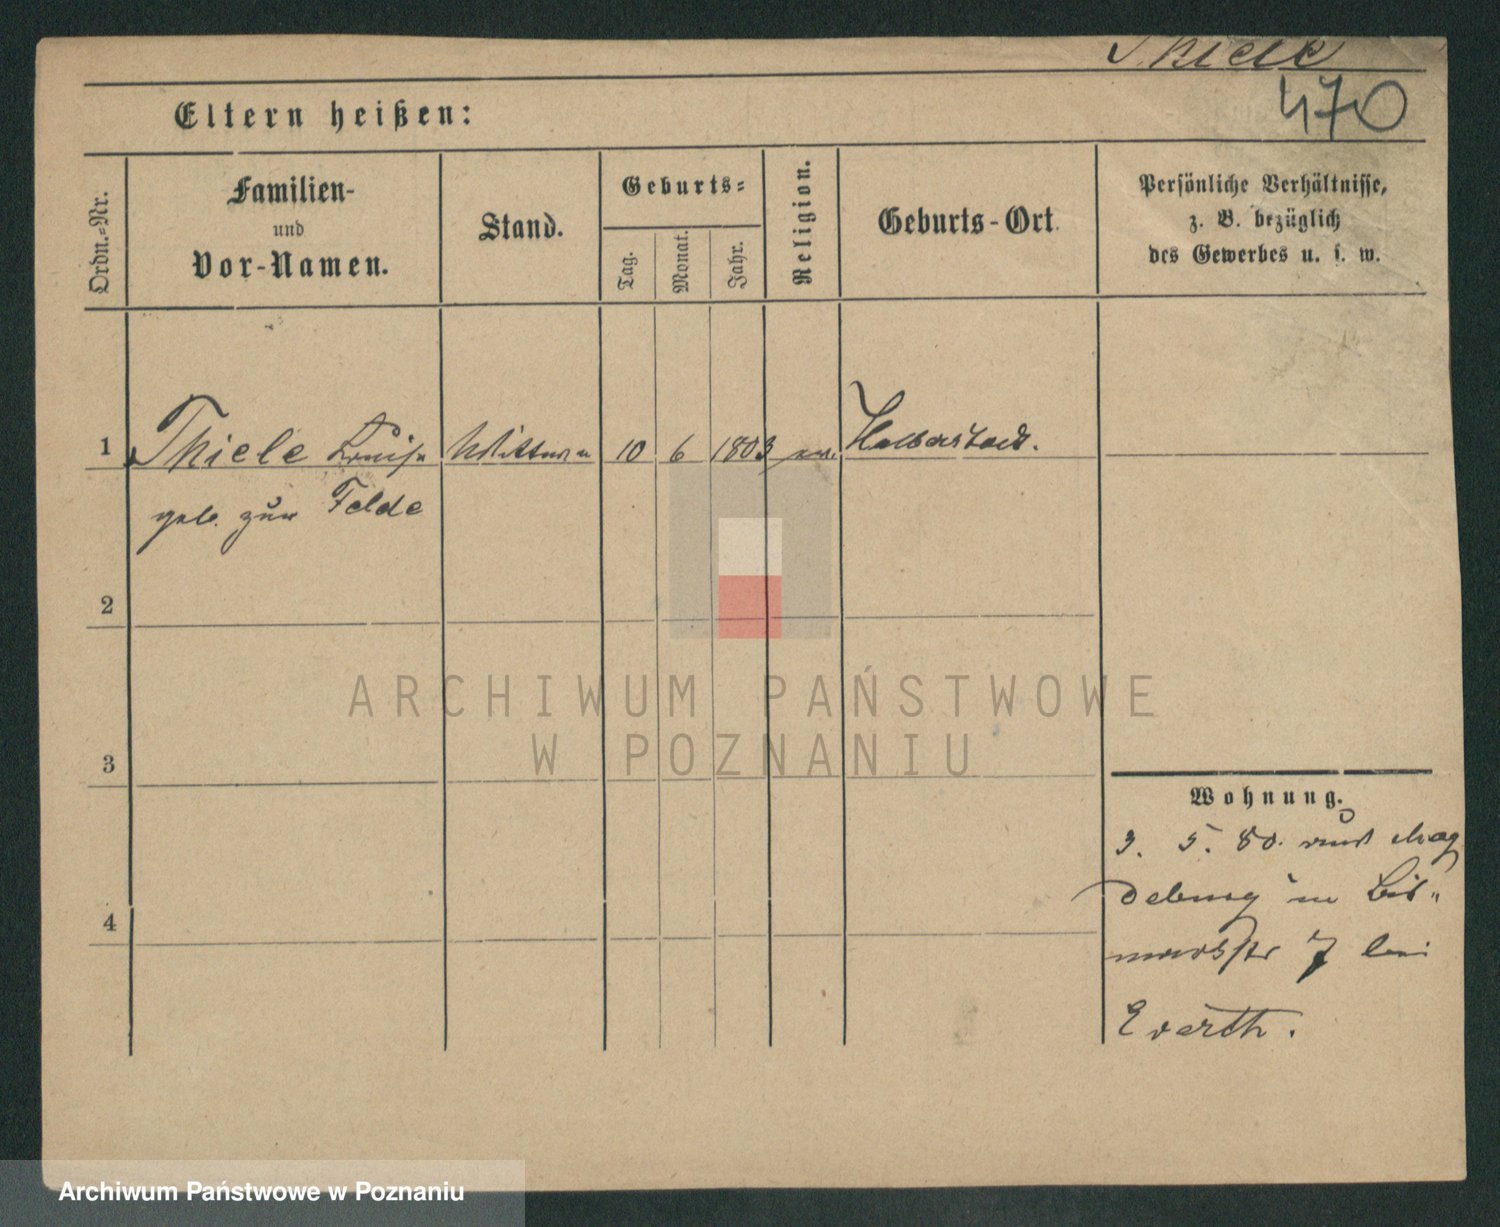 Thiele
470
Eltern heißen:
Ordn.-Nr.
Familien-
und
Vor-Namen.
Stand.
Geburts-
Tag.
Monat.
Jahr.
Religion.
Geburts-Ort.
Persönliche Verhältnisse,
z. B. bezüglich
des Gewerbes u. s. w.
1 Thiele Louise Wittwe 10 6 1803 ev. Halberstadt.
geb. zur Felde
2
3
4
Wohnung.
3. 5. 80. nach Mag
deburg in Bis-
markstr 7 bei
Everth.
ARCHIWUM PAŃSTWOWE
W POZNANIU
Archiwum Państwowe w Poznaniu